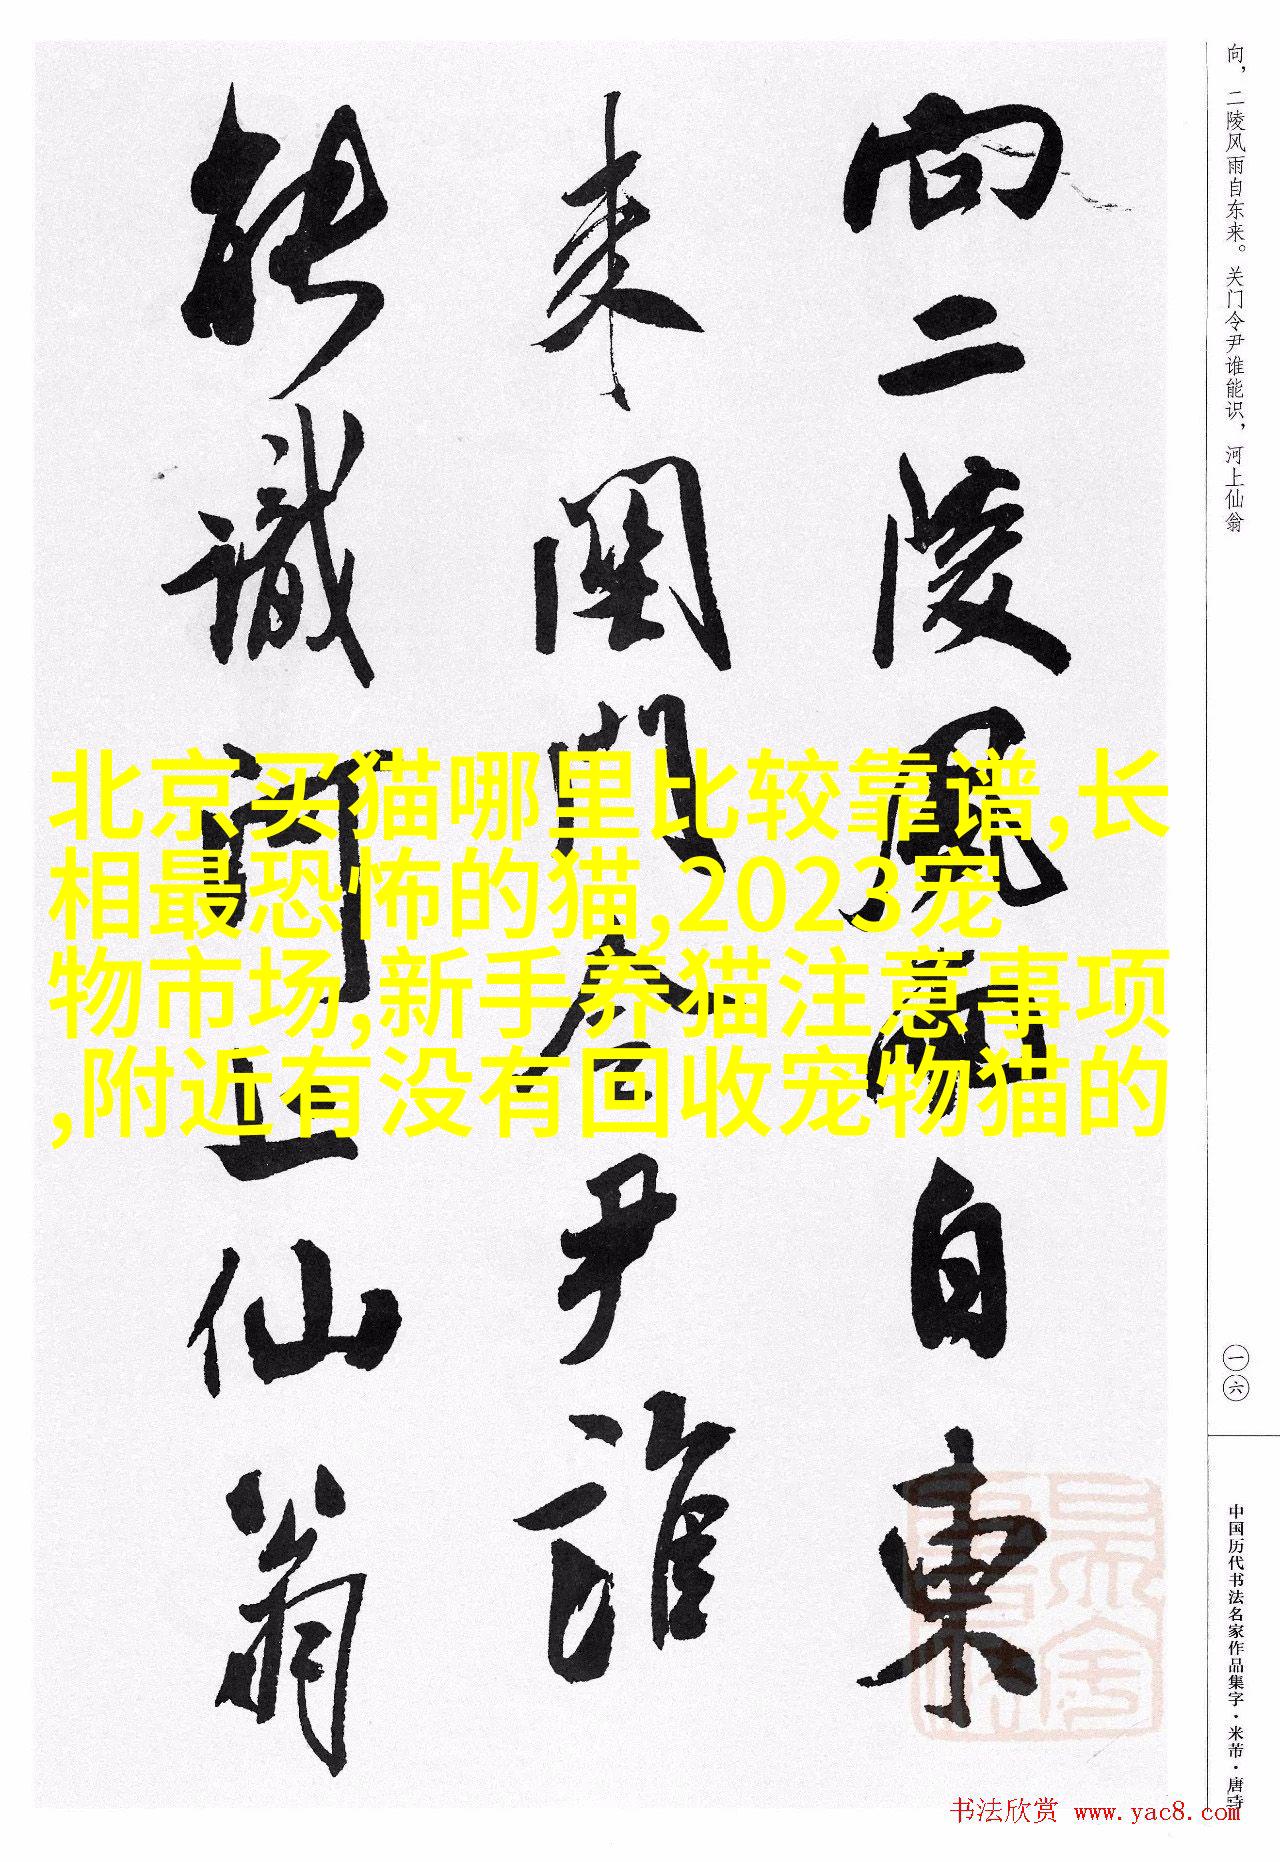 向二陵風雨自東
来関門令尹誰
能識河上仙翁
北京买猫哪里比较靠谱,长
相最恐怖的猫,2023宠
物市场,新手养猫注意事项
,附近有没有回收宠物猫的
向，二陵风雨自东来。关门令尹谁能识，河上仙翁
一六
中国历代书法名家作品集字·米芾·唐诗
书法欣赏 www.yac8.com